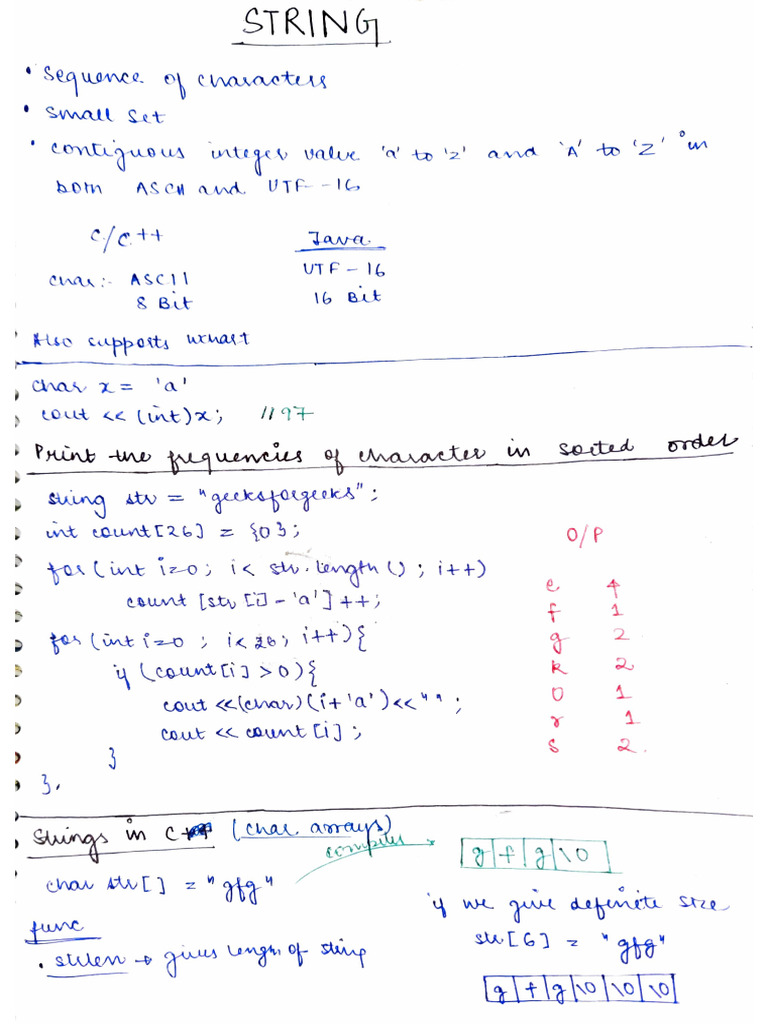 STRING
• Sequence of characters
• Small Set
• Contiguous integer value 'a' to 'z' and 'A' to 'Z' in
both ASCII and UTF-16
C/C++ Java
char:- ASCII UTF-16
8 Bit 16 Bit
Also supports wchar_t
char x = 'a'
cout << (int)x; //97
Print the frequencies of character in sorted order
string str = "geeksforgeeks";
int count[26] = {0};
O/P
for(int i=0; i< str.length(); i++)
count [str[i]-'a']++;
for(int i=0; i<26; i++){
if (count[i]>0){
cout <<(char)(i+'a')<<" ";
cout << count[i];
}
}.
e 4
f 1
g 2
k 2
o 1
r 1
s 2.
Strings in C (char arrays)
compiler
g f g \0
char str[] = "gfg"
if we give definete size
func
str[6] = "gfg"
• strlen → gives length of string
g f g \0 \0 \0